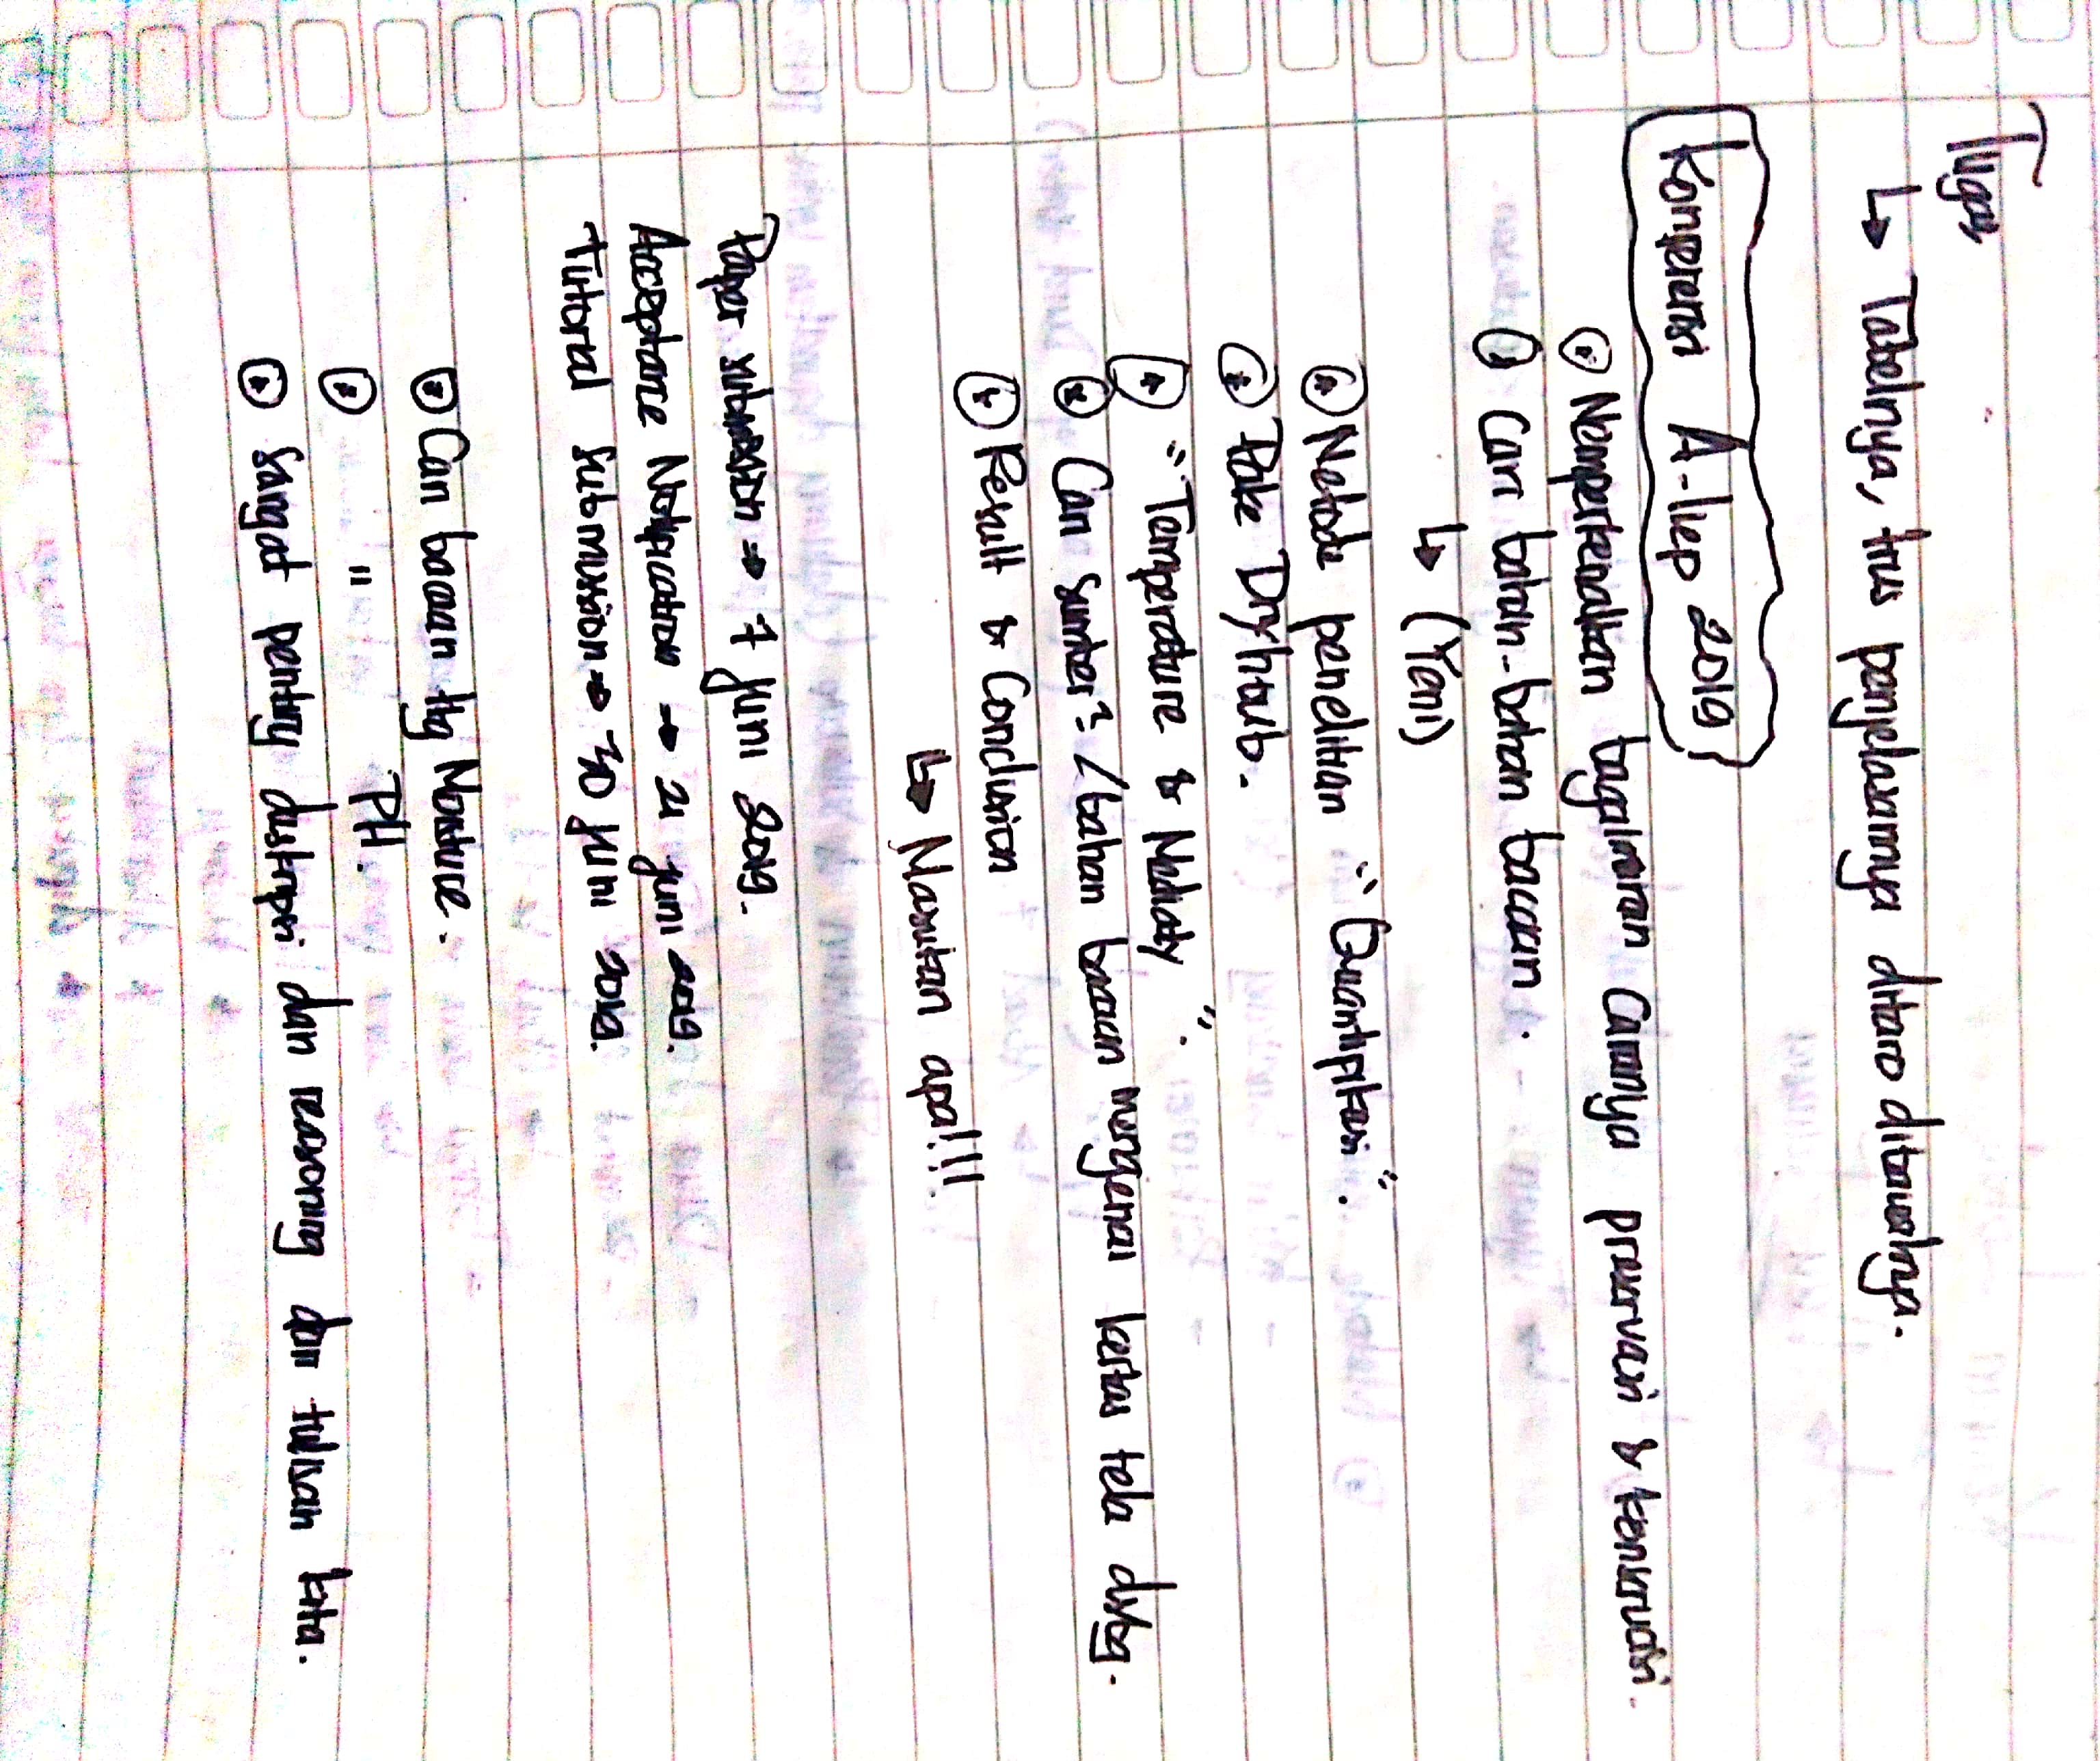 Tugas
↳ Tabelnya, trus penjelasannya ditaro dibawahnya.
Konperensi A-liep 2019
Memperkenalkan bagaimana Caranya preservasi & konservasi.
Cari bahan-bahan bacaan.
↳ (Yeni)
Metode penelitian "Quantipikasi".
Pake Dryhtub.
"Temperature &
Cari sumber² / bahan bacaan mengenai kertas tela
Result & Conclusion
↳ Masukan apa!!!
Paper submission → 7 juni 2019.
Acceptance Notipication → 21 juni 2019.
Tutorial Submission → 30 juni 2019.
Cari bacaan ttg Moisture.
" PH.
Sangat penting diskripsi dan reasoning dari tulisan kita.